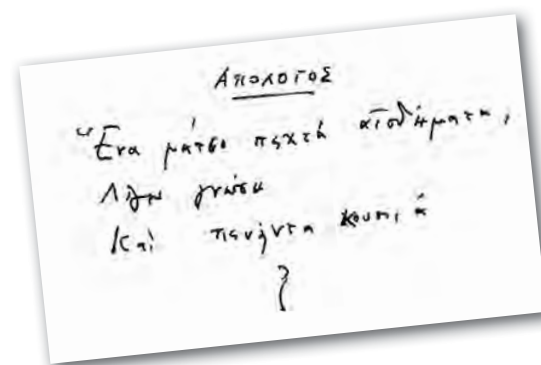 ΑΠΟΛΟΓΟΣ
Ἕνα μάτσο πηχτὰ αἰσθήματα,
Λίγη γνώση
Καὶ πενήντα κουπιὰ
?